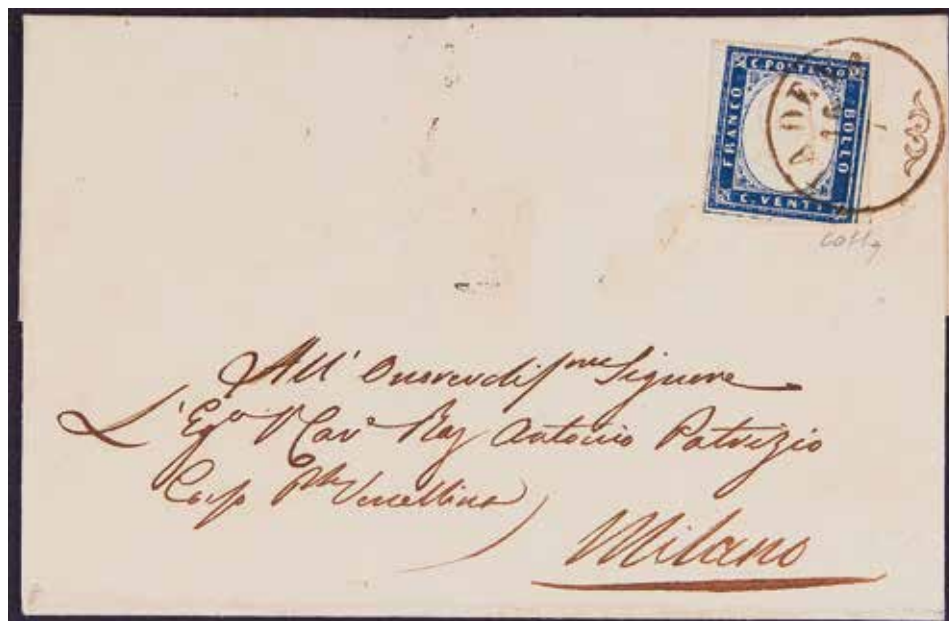 C. POSTE 20
FRANCO
BOLLO
C. VENTI
ADE
18
All' Onorevdi/mo Signore
L' Eg.o Cav.o Rag Antonio Patrizio
Corso P.ta Vercellina
Milano